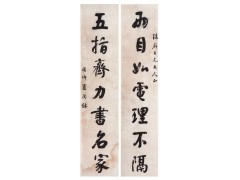 兩目如電理不隔
五指齊力書名家